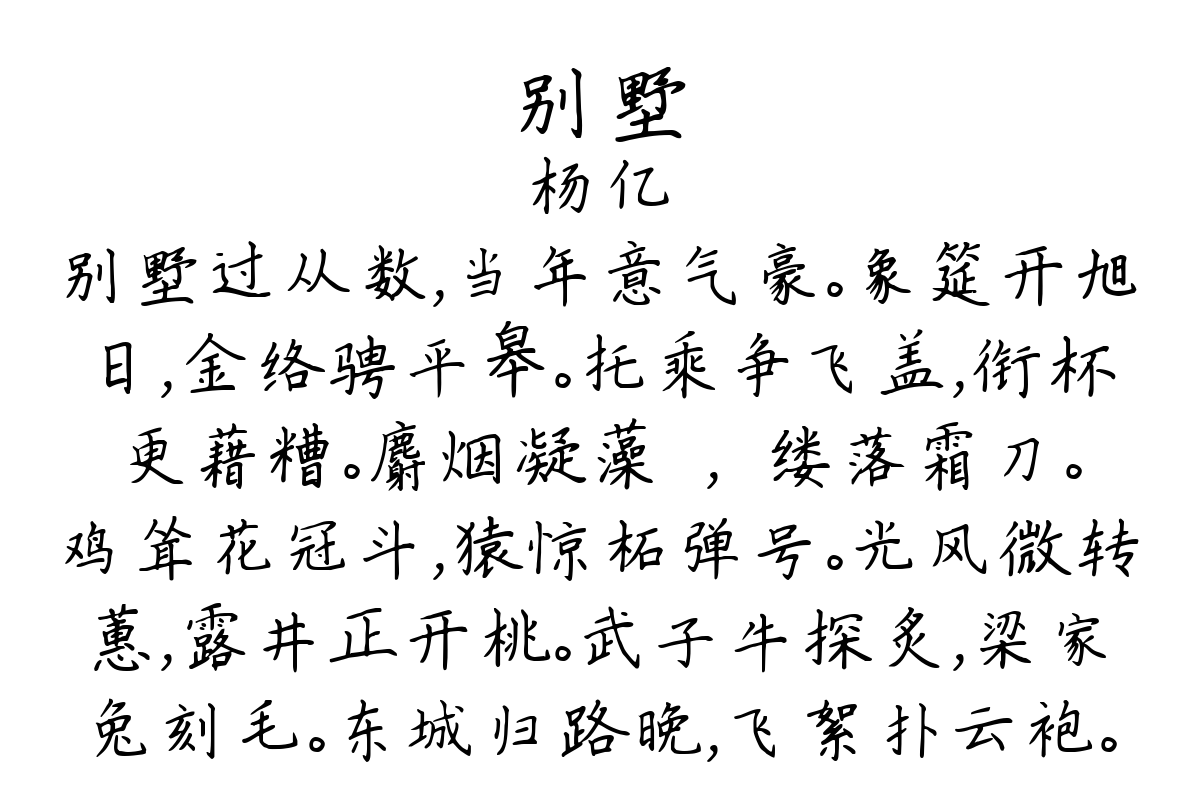 别墅
杨亿
别墅过从数,当年意气豪。象筵开旭
日,金络骋平皋。托乘争飞盖,衔杯
更藉糟。麝烟凝藻 , 缕落霜刀。
鸡耸花冠斗,猿惊柘弹号。光风微转
蕙,露井正开桃。武子牛探炙,梁家
兔刻毛。东城归路晚,飞絮扑云袍。